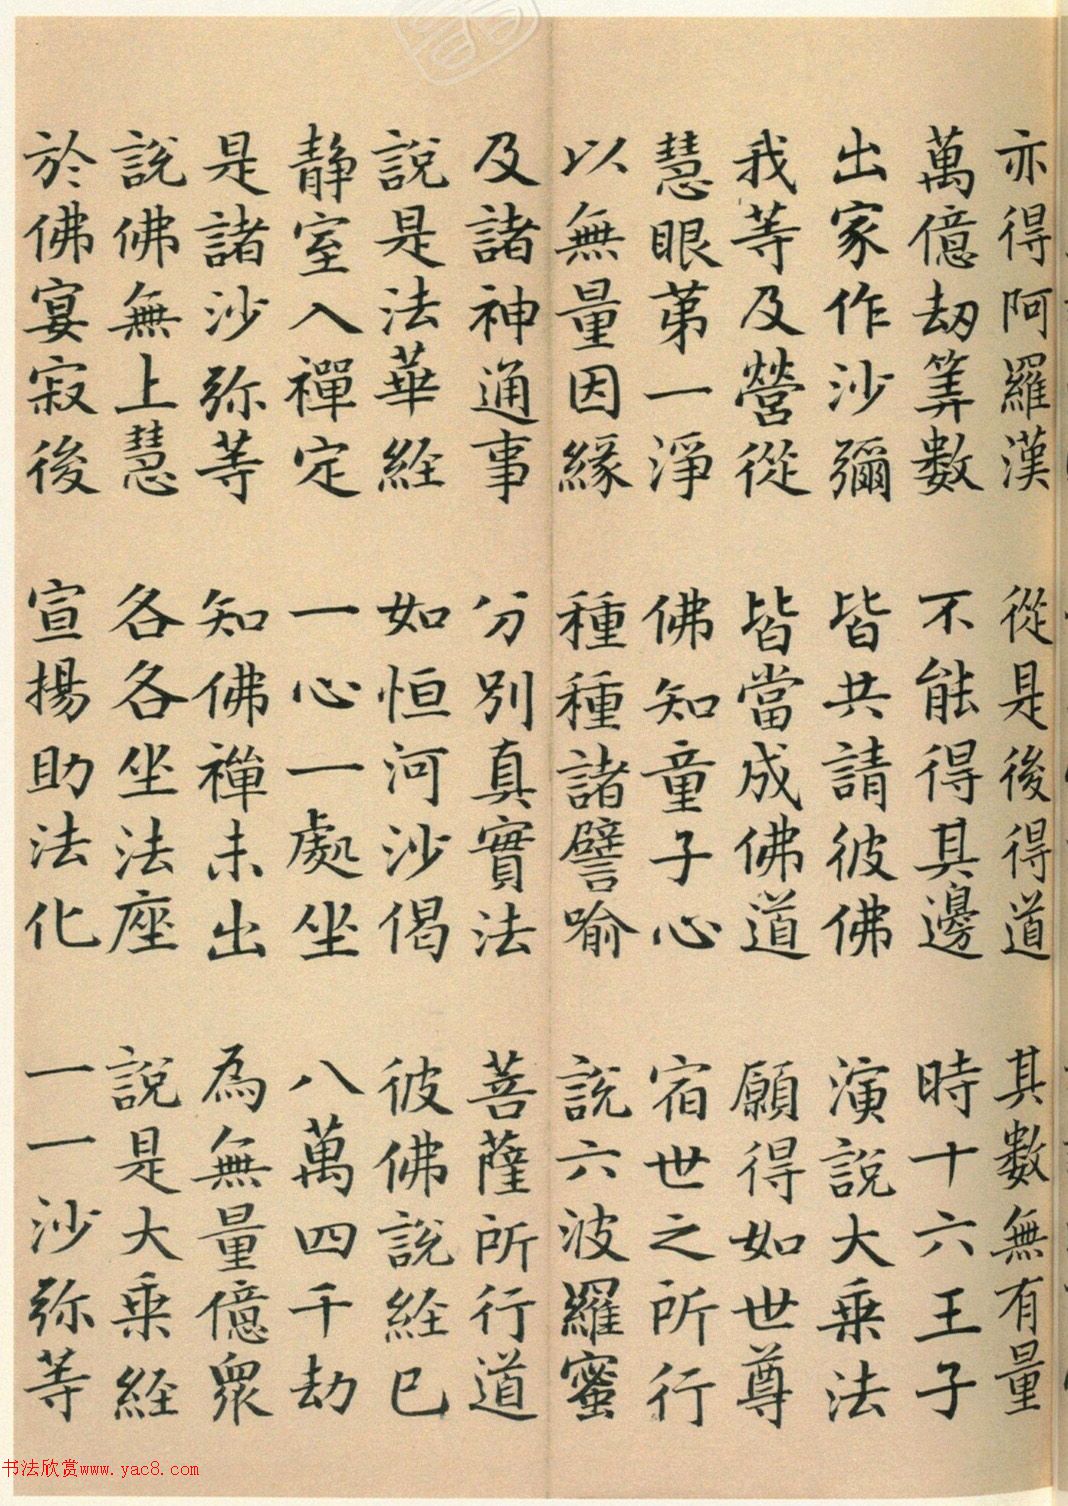 亦得阿羅漢 從是後得道 其數無有量
萬億劫筭數 不能得其邊 時十六王子
出家作沙彌 皆共請彼佛 演說大乘法
我等及營從 皆當成佛道 願得如世尊
慧眼苐一淨 佛知童子心 宿世之所行
以無量因緣 種種諸譬喻 說六波羅蜜
及諸神通事 分別真實法 菩薩所行道
說是法華經 如恒河沙偈 彼佛說經已
静室入禪定 一心一處坐 八萬四千劫
是諸沙弥等 知佛禪未出 為無量億眾
說佛無上慧 各各坐法座 說是大乘經
於佛宴寂後 宣揚助法化 一一沙弥等
书法欣赏www.yac8.com